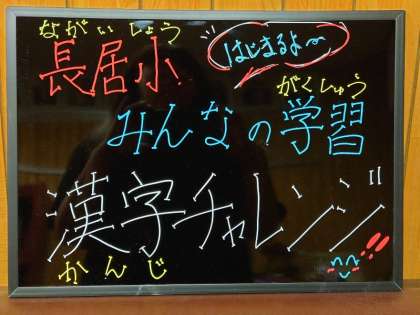 ながいしょう
長居小
はじまるよ〜
がくしゅう
みんなの学習
漢字チャレンジ!!
かんじ